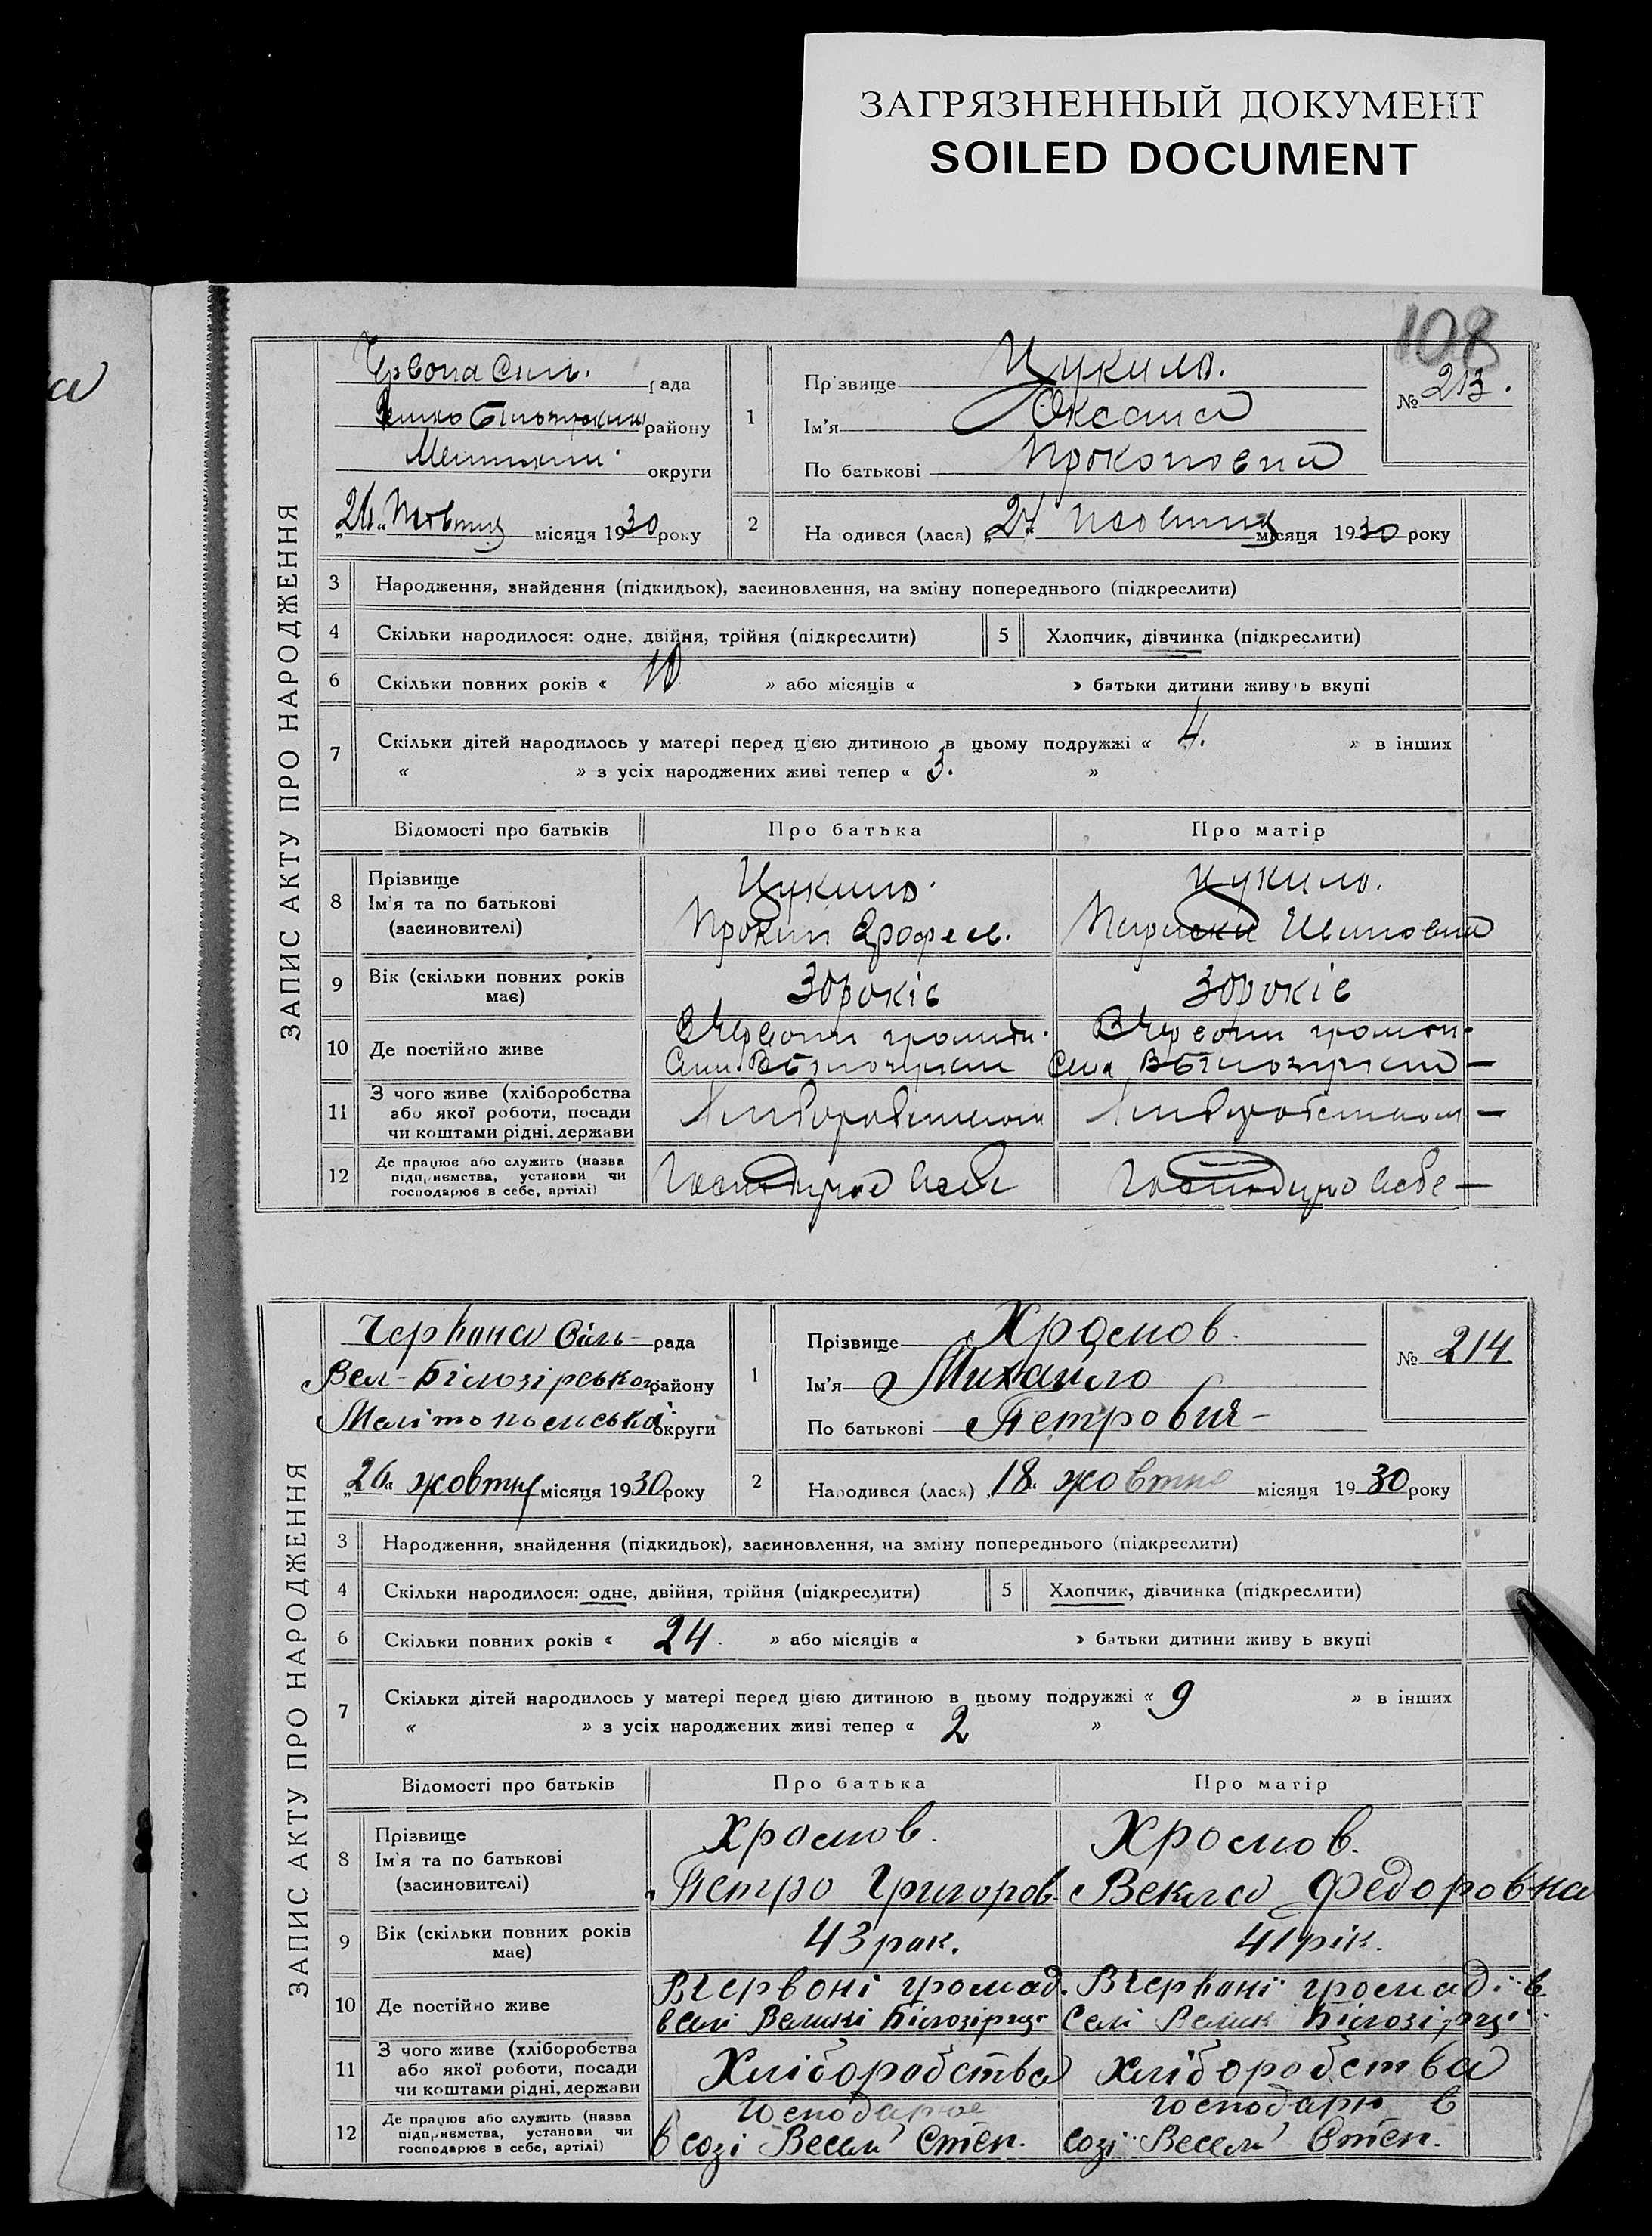 ЗАГРЯЗНЕННЫЙ ДОКУМЕНТ
SOILED DOCUMENT
108
ЗАПИС АКТУ ПРО НАРОДЖЕННЯ
Червона Сіль. рада
району
округи
„26“ Жовтня місяця 1930 року
1
Прізвище Цукило.
Ім'я Оксана
По батькові Прокоповна
№ 213.
2
Народився (лася) „24“ жовтня місяця 1930 року
3 Народження, знайдення (підкидьок), засиновлення, на зміну попереднього (підкреслити)
4 Скільки народилося: одне, двійня, трійня (підкреслити)
5 Хлопчик, дівчинка (підкреслити)
6 Скільки повних років « 10 » або місяців « » батьки дитини живуть вкупі
7 Скільки дітей народилось у матері перед цією дитиною в цьому подружжі « 4. » в інших
« » з усіх народжених живі тепер « 3. »
Відомості про батьків Про батька Про матір
8 Прізвище
Ім'я та по батькові
(засиновителі)
Цукило.
Прокіп Ерофеев.
Цукило.
Ивановна
9 Вік (скільки повних років має)
30 років
30 років
10 Де постійно живе
11 З чого живе (хліборобства
або якої роботи, посади
чи коштами рідні, держави
12 Де працює або служить (назва
підприємства, установи чи
господарює в себе, артілі)
ЗАПИС АКТУ ПРО НАРОДЖЕННЯ
Червона Сіль рада
Вел-Білозірсько району
округи
„26“ жовтня місяця 1930 року
1
Прізвище Храмов.
Ім'я Михаило
По батькові Петрович-
№ 214.
2
Народився (лася) „18“ жовтня місяця 1930 року
3 Народження, знайдення (підкидьок), засиновлення, на зміну попереднього (підкреслити)
4 Скільки народилося: одне, двійня, трійня (підкреслити)
5 Хлопчик, дівчинка (підкреслити)
6 Скільки повних років « 24. » або місяців « » батьки дитини живуть вкупі
7 Скільки дітей народилось у матері перед цією дитиною в цьому подружжі « 9 » в інших
« » з усіх народжених живі тепер « 2 »
Відомості про батьків Про батька Про матір
8 Прізвище
Ім'я та по батькові
(засиновителі)
Храмов.
Петро Григоров
Храмов.
Векла Федоровна
9 Вік (скільки повних років має)
43 рок.
41 рік.
10 Де постійно живе
В червоні громад.
в селі Великі Білозірці
В червоні громаді в
Селі Велик Білозірці
11 З чого живе (хліборобства
або якої роботи, посади
чи коштами рідні, держави
Хліборобства
Хліборобства
12 Де працює або служить (назва
підприємства, установи чи
господарює в себе, артілі)
Господарює
в созі Весели Степ.
Господарю в
созі Весели Степ.